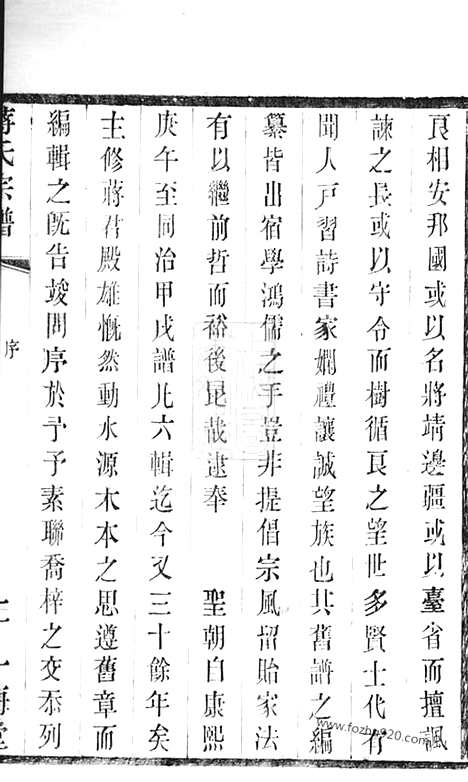 良相安邦國或以名將靖邊疆或以臺省而擅諷
諫之長或以守令而樹循良之望世多賢士代有
聞人戸習詩書家嫻禮讓誠望族也其舊譜之編
纂皆出宿學鴻儒之手豈非提倡宗風留貽家法
有以繼前哲而裕後昆哉逮奉　聖朝自康熙
庚午至同治甲戌譜凡六輯迄今又三十餘年矣
主修蔣君殿雄慨然動水源木本之思遵舊章而
編輯之旣告竣問序於予予素聯喬梓之交忝列
蔣氏宗譜
序
www.fozhu920.com